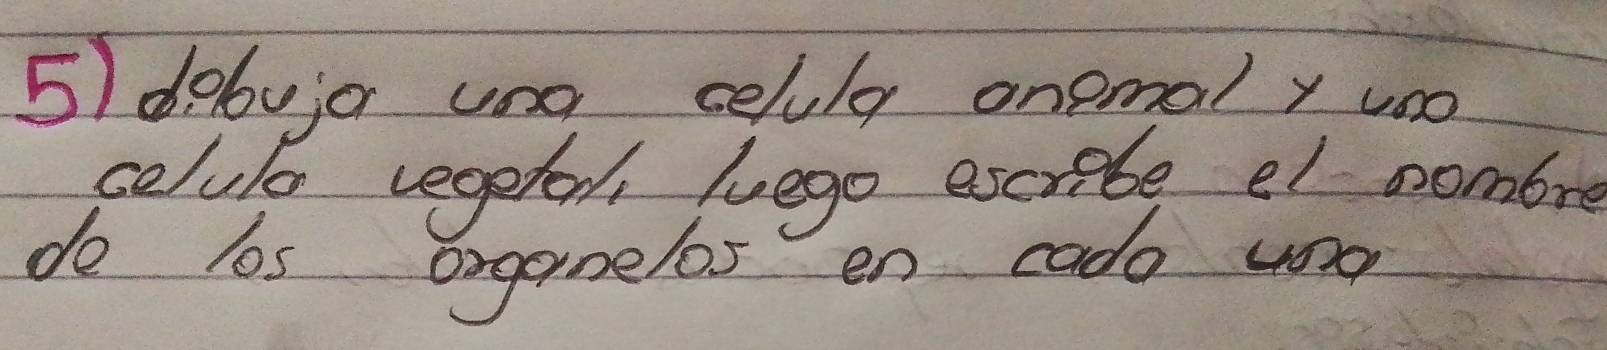 5) dibuja una celula animal y una
celula vegetal, luego escribe el nombre
de los organelos en cada una